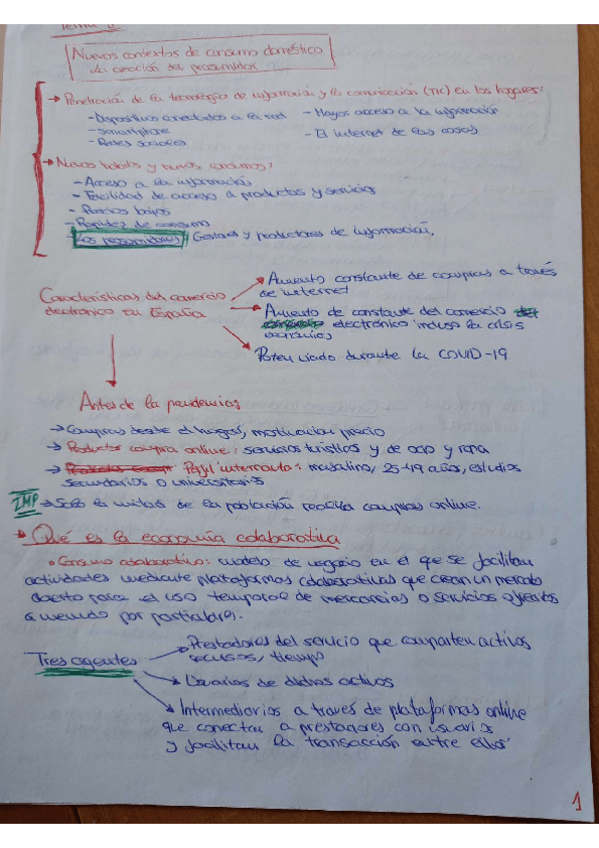 Tema
Nuevos contextos de consumo doméstico
la creación del prosumidor
→ Penetración de la tecnología de información y la comunicación (TIC) en los hogares:
- Dispositivos conectados a la red - Mayor acceso a la información
- Smartphone - El internet de las cosas
- Redes sociales
→ Nuevos hábitos y nuevos consumos:
- Acceso a la información
- Facilidad de acceso a productos y servicios
- Precios bajos
- Rapidez de consumo
- Los prosumidores: Gestores y productores de información.
→ Aumento constante de compras a través
de internet
Características del comercio
electrónico en España
→ Aumento de constante del comercio
electrónico incluso la crisis
→ Potenciado durante la COVID-19
Antes de la pandemia:
→ Compras desde el hogar, motivación precio
→ Productos compra online: servicios turísticos y de ocio y ropa
→ Perfil internauta: masculino, 25-49 años, estudios
secundarios o universitarios
IMP → Solo la mitad de la población realiza compras online.
→ Qué es la economía colaborativa
• Consumo colaborativo: modelo de negocio en el que se facilitan
actividades mediante plataformas colaborativas que crean un mercado
abierto para el uso temporal de mercancías o servicios ofrecidos
a menudo por particulares.
→ Prestadores del servicio que comparten activos
recursos, tiempo
Tres agentes
→ Usuarios de dichos activos
→ Intermediarios a través de plataformas online
que conectan a prestadores con usuarios
y facilitan la transacción entre ellos
1